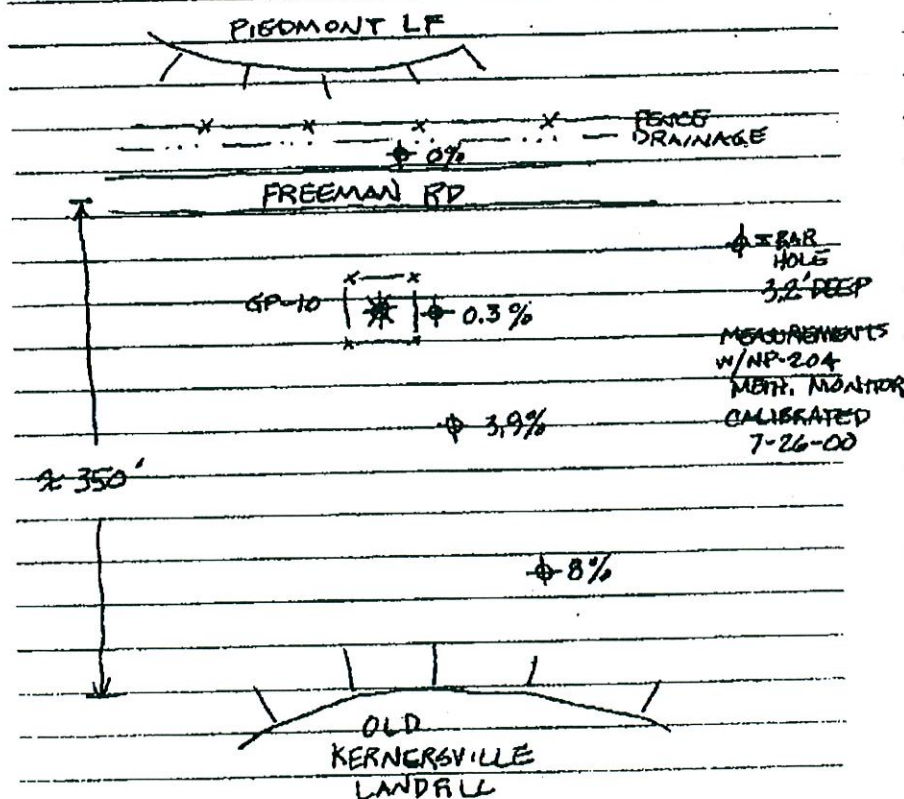 PIEDMONT LF
FENCE
DRAINAGE
0%
FREEMAN RD
= BAR
HOLE
3.2' DEEP
GP-10
0.3%
MEASUREMENTS
W/NP-204
METH. MONITOR
CALIBRATED
7-26-00
3.9%
≈ 350'
8%
OLD
KERNERSVILLE
LANDFILL